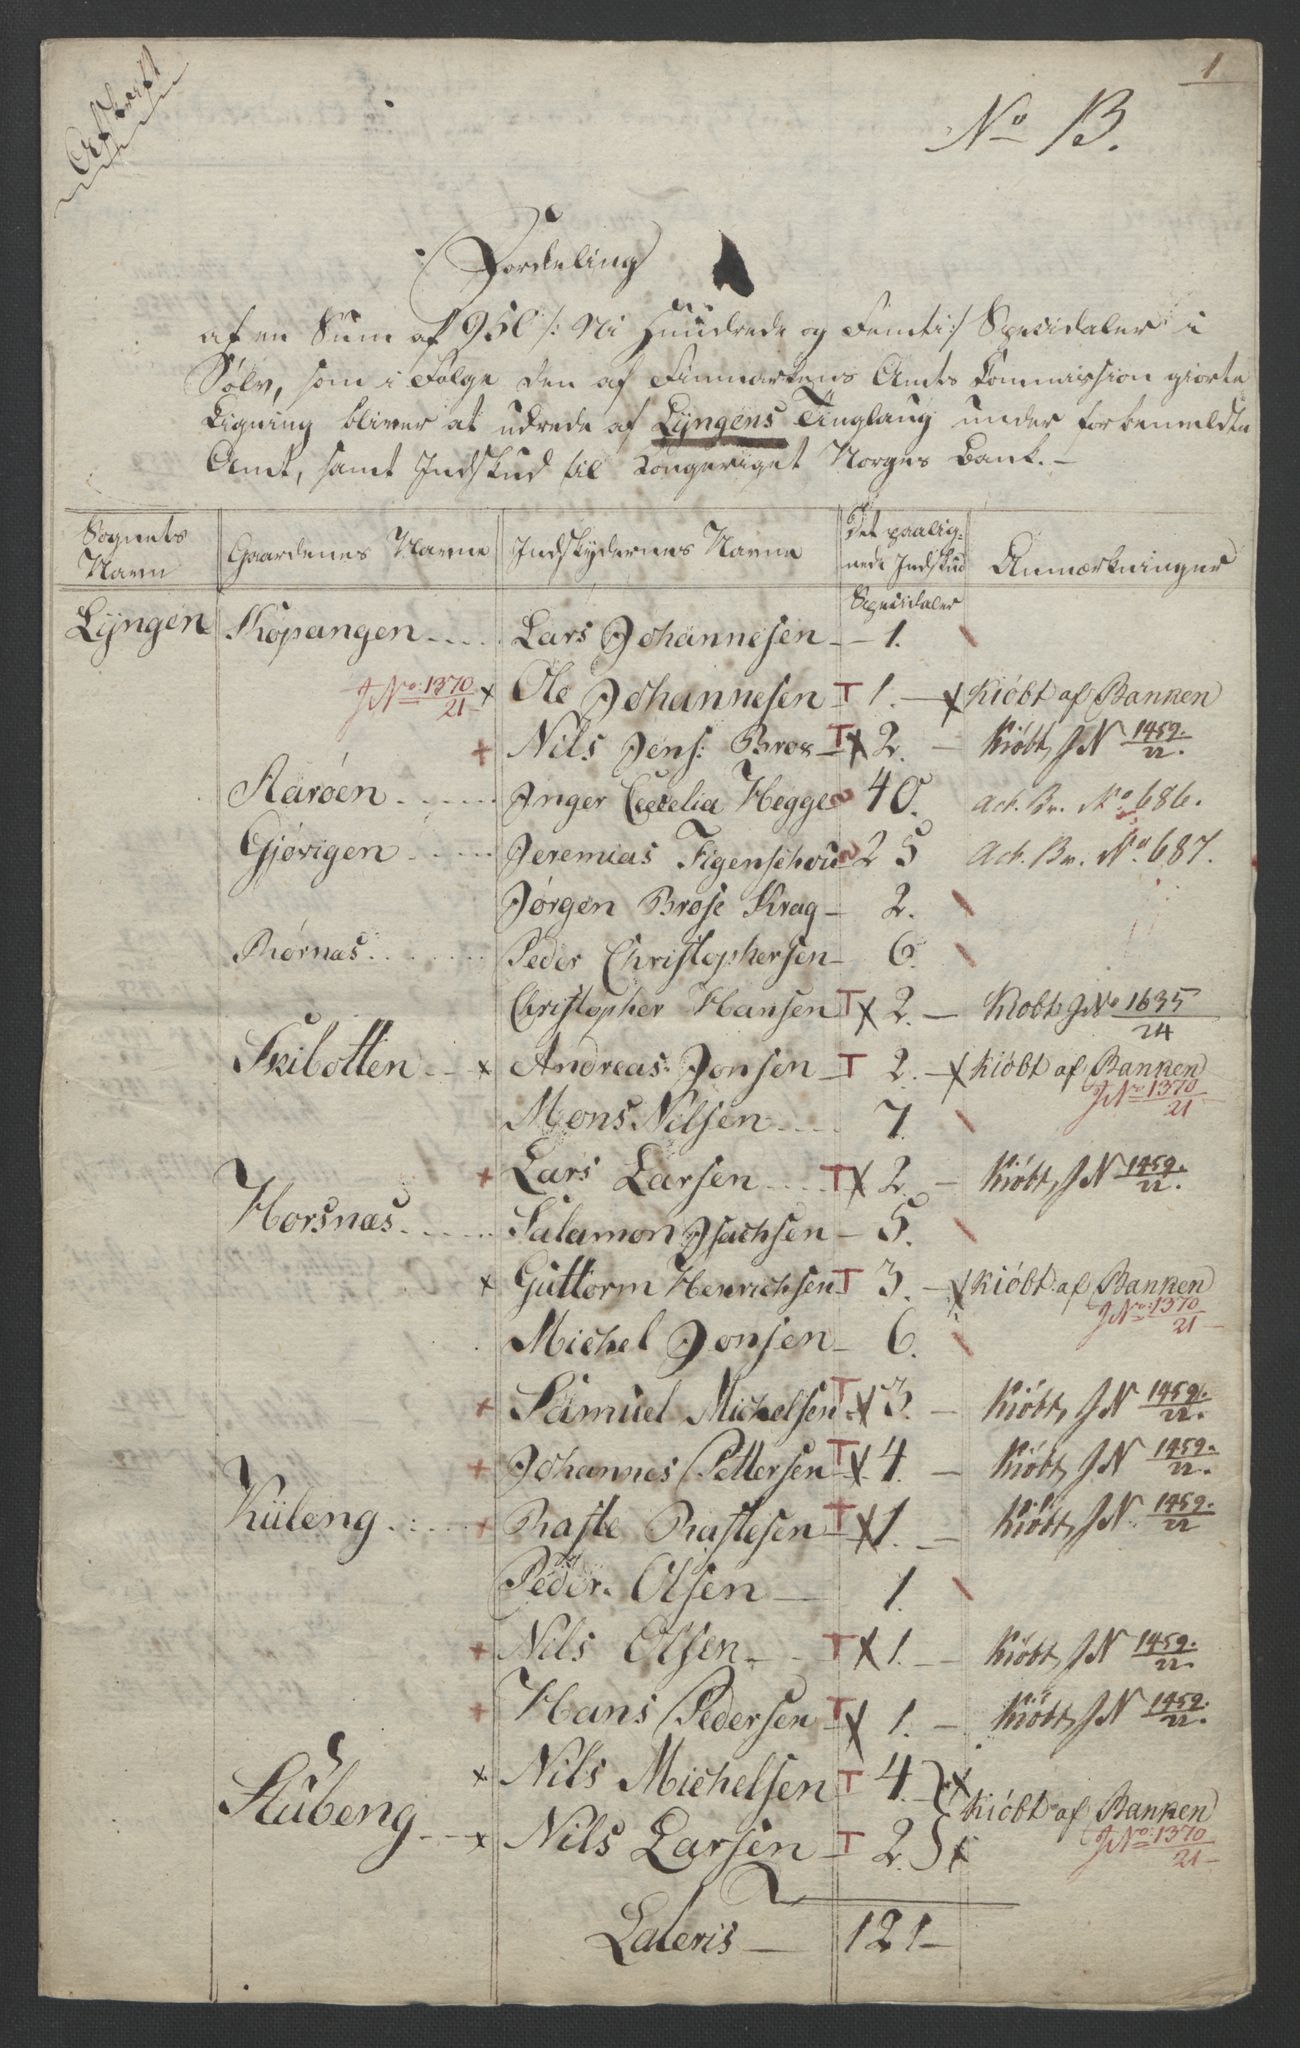 1
Afskrift
No 13.
Fordeling
af en Sum af 950 /: Ni Hundrede og Femti :/ Speciedaler i
Sølv, som i Følge den af Finmarkens Amts Commission giorte
Ligning bliver at udrede af Lyngens Tinglaug under forbemeldte
Amt, samt Indskud til Kongeriget Norges Bank. -
Sognets Navn | Gaardenes Navne | Indskydernes Navne | Det paalignede Indskud Speciedaler | Anmærkninger
Lyngen Kopangen Lars Johannesen 1.
J No: 1370/21 x Ole Johannesen T 1. x kióbt af Banken
+ Nils Jens: Brox T x 2. Kióbt, J N 1459./22.
Aarøen Inger Cecelia Hegge 40. Act. Br. No 686.
Gjøvigen Jeremias Figenschou 25 Act. Br. No 687.
Jørgen Brose Krag 2.
Rørnæs Peder Christophersen 6.
Christopher Hansen T x 2. Kiobt J No 1635/24
Skibotten x Andreas Jonsen T 2. x kióbt af Banken
J No: 1370/21
Mons Nilsen 7.
+ Lars Larsen T x 2. Kióbt, J N 1459./22.
Horsnæs Salamon Isachsen 5.
x Guttorm Henrichsen T 3. x kióbt af Banken
J No: 1370/21
Michel Jonsen 6.
+ Samuel Michelsen T x 3. Kióbt, J N 1459./22.
+ Johannes Pettersen T x 4. Kióbt, J N 1459./22.
Küleng + Raste Rastesen T x 1. Kióbt, J N 1459./22
Peder Olsen 1.
+ Nils Olsen T x 1. Kióbt, J N 1459./22.
+ Hans Pedersen T x 1. Kióbt, J N 1459./22.
x Nils Michelsen T 4. x
Skübeng kióbt af Banken
x Nils Larsen T 2. x J No: 1370/21
Lateris 121